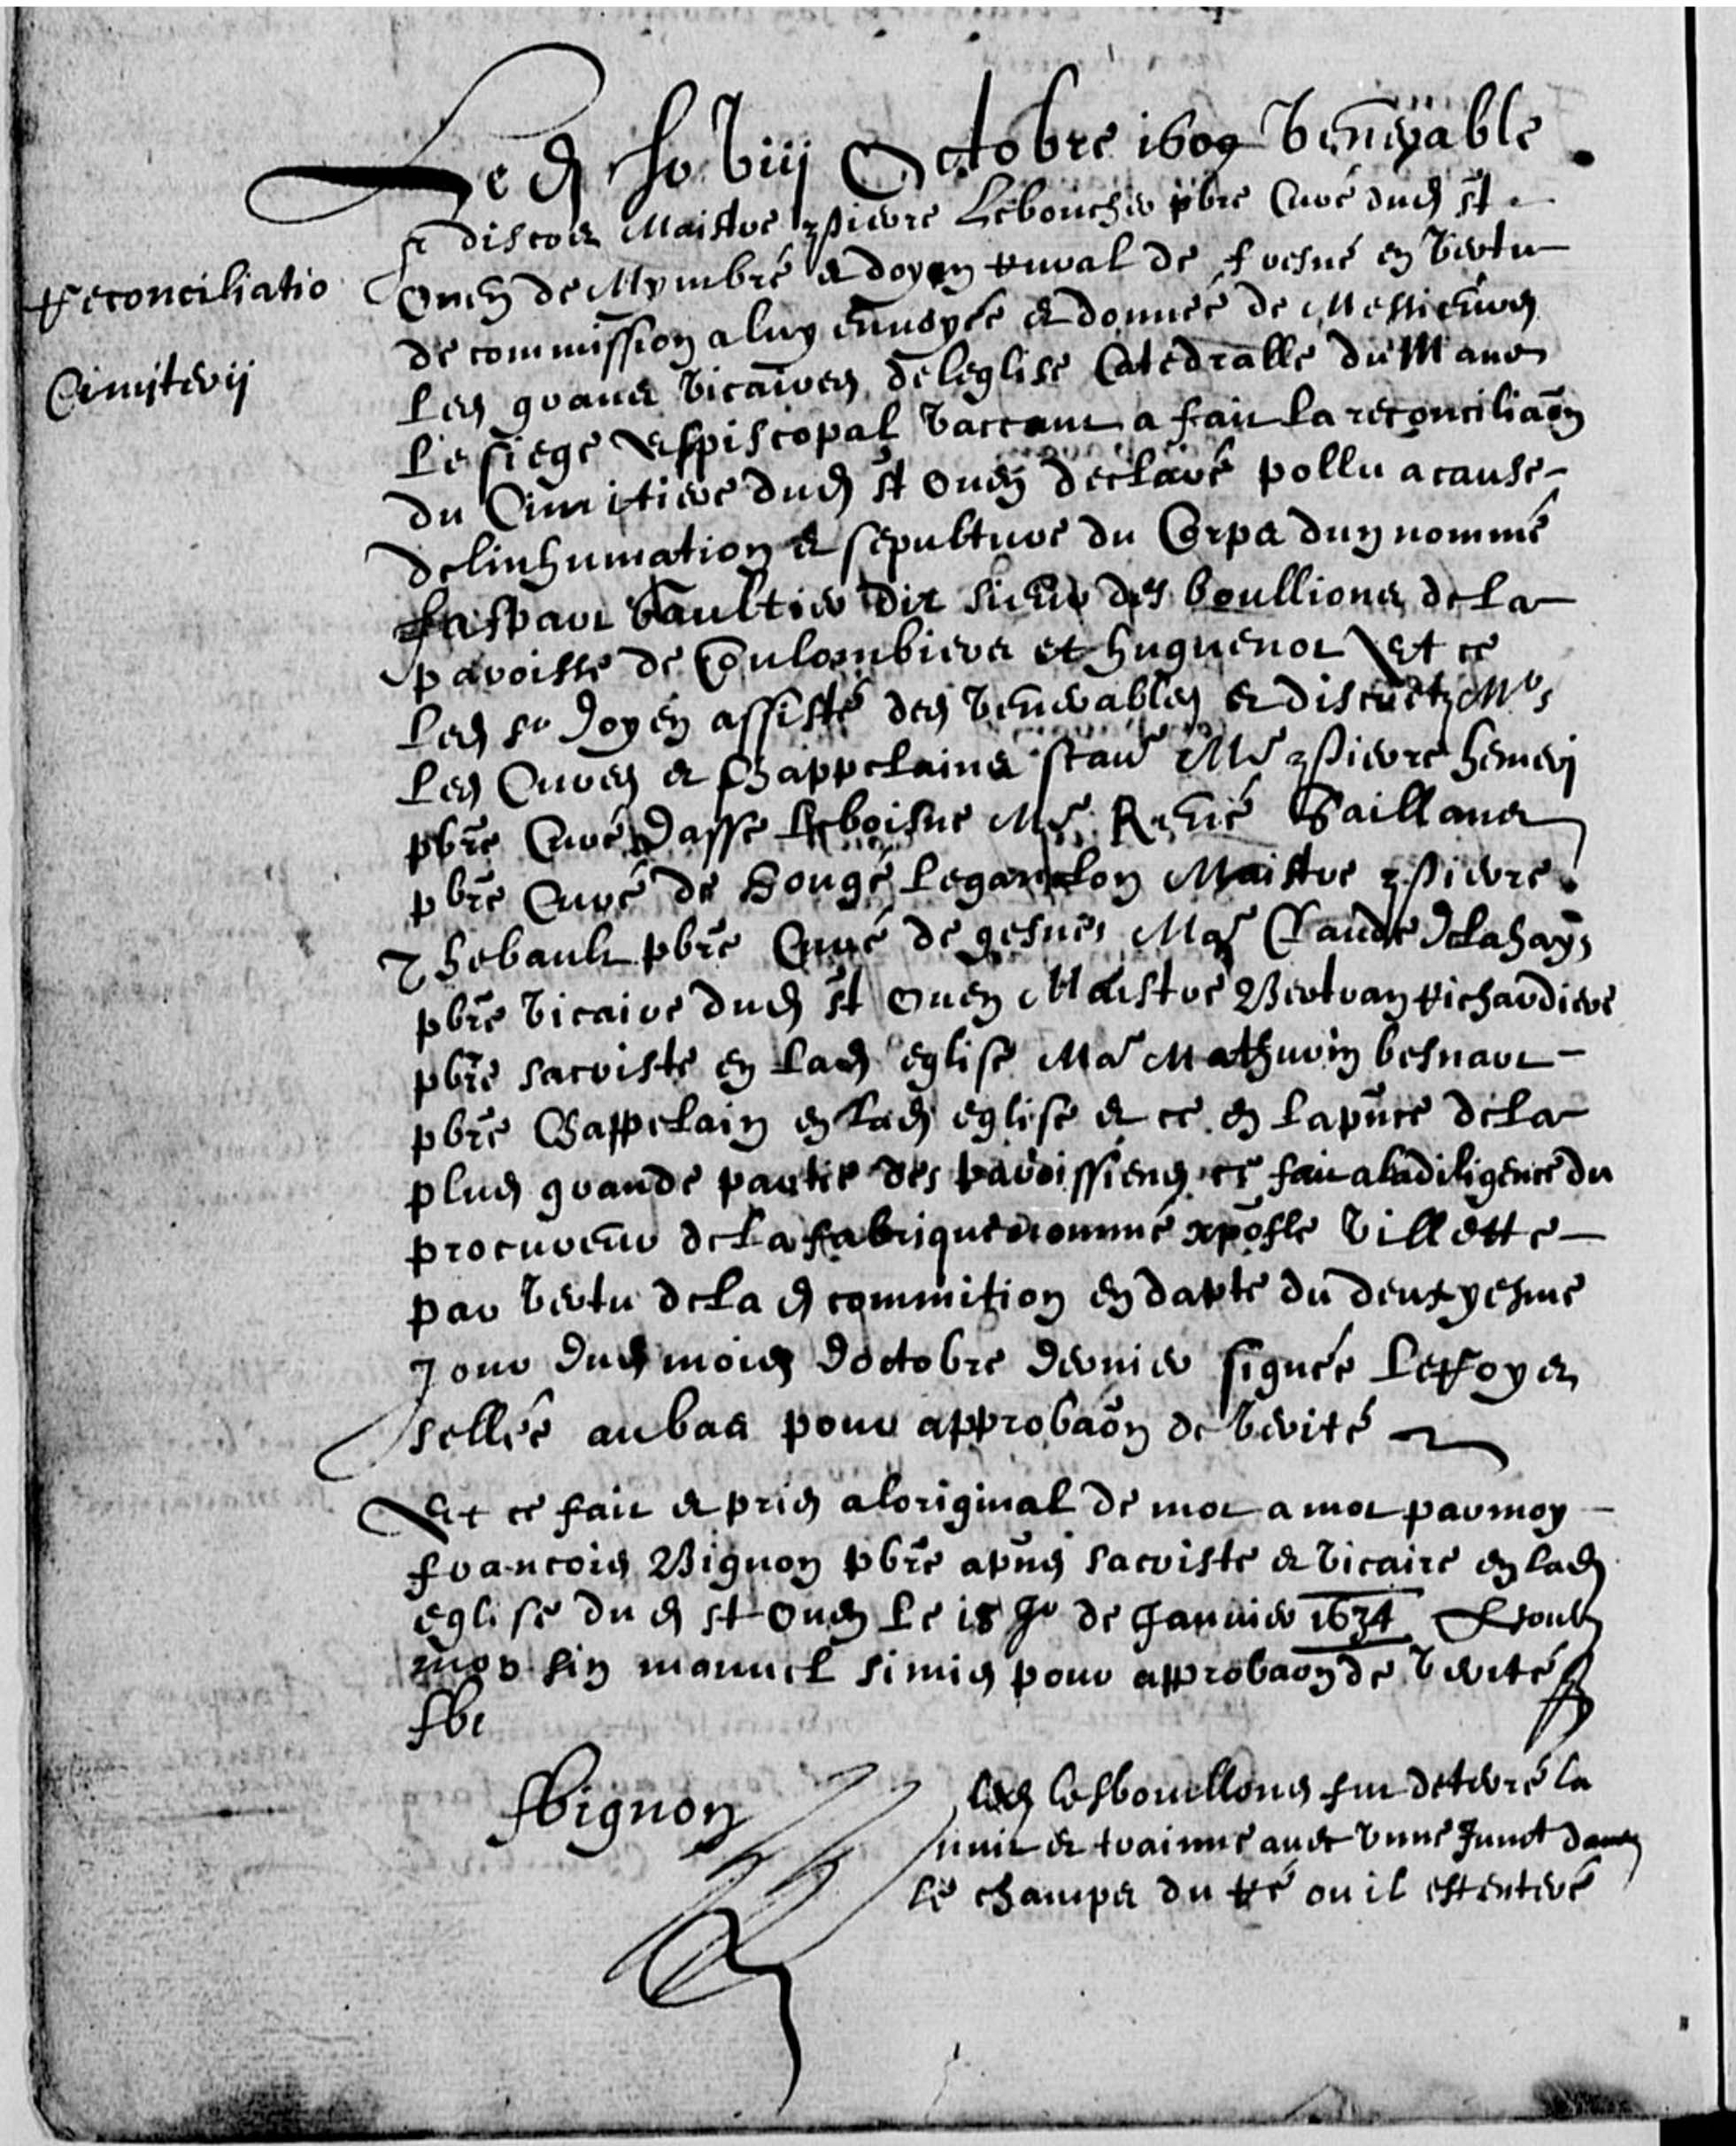 Led. jo. viii Octobre 1609 venerable
et discret Maistre Pierre Leboucher pbre Curé dud. st
Reconciliatio
Cimiterij
Ouen de Mymbré & doyen rural de fresné en vertu
de commission a luy envoyée & donnée de Messieurs
les grands vicaires de leglise Catedralle du Mans
le siege Episcopal vaccant a fait la reconciliaon
du Cimitiere dud. st Ouen declaré pollu a cause
de linhumation & sepulture du Corps dun nommé
Gaspart Vaultier dit sieur des boullions de la
paroisse de Coulombiers et huguenot Et ce
led. sr doyen assisté des venerables & discretz Mrs
les Curés & Chappelains scavr Mr Pierre hemery
pbre Curé Dasse leboisne Mr René Vaillant
pbre Curé de Sougé leganelon Maistre Pierre
Thebault pbre Curé de gesnes Me Claude delahaye
pbre vicaire dud. st Ouen Maistre Bertran Richardiere
pbre sacriste en lad. eglise Me Mathurin besnart
pbre Chappelain en lad. eglise & ce en la pnce de la
plus grande partie des paroissiens ce fait a la diligence du
procureur de la fabrique nommé xpofle Villette
par vertu de lad. commition en datte du deuxyesme
Jour dud. mois doctobre dernier signée LeRoy &
sellée au bas pour approbaon de verité
Et ce fait & pris a loriginal de mot a mot par moy
francois Bignon pbre a pnt sacriste & vicaire en lad.
eglise dud. st Ouen le 18 Jr de Janvier 1634 soubz
mon sin manuel si mis pour approbaon de verité
fbi
fbignon
led. lesboullons fut deterré la
nuit & trainné avec une Jument dans
le champs du Ré ou il est enteré